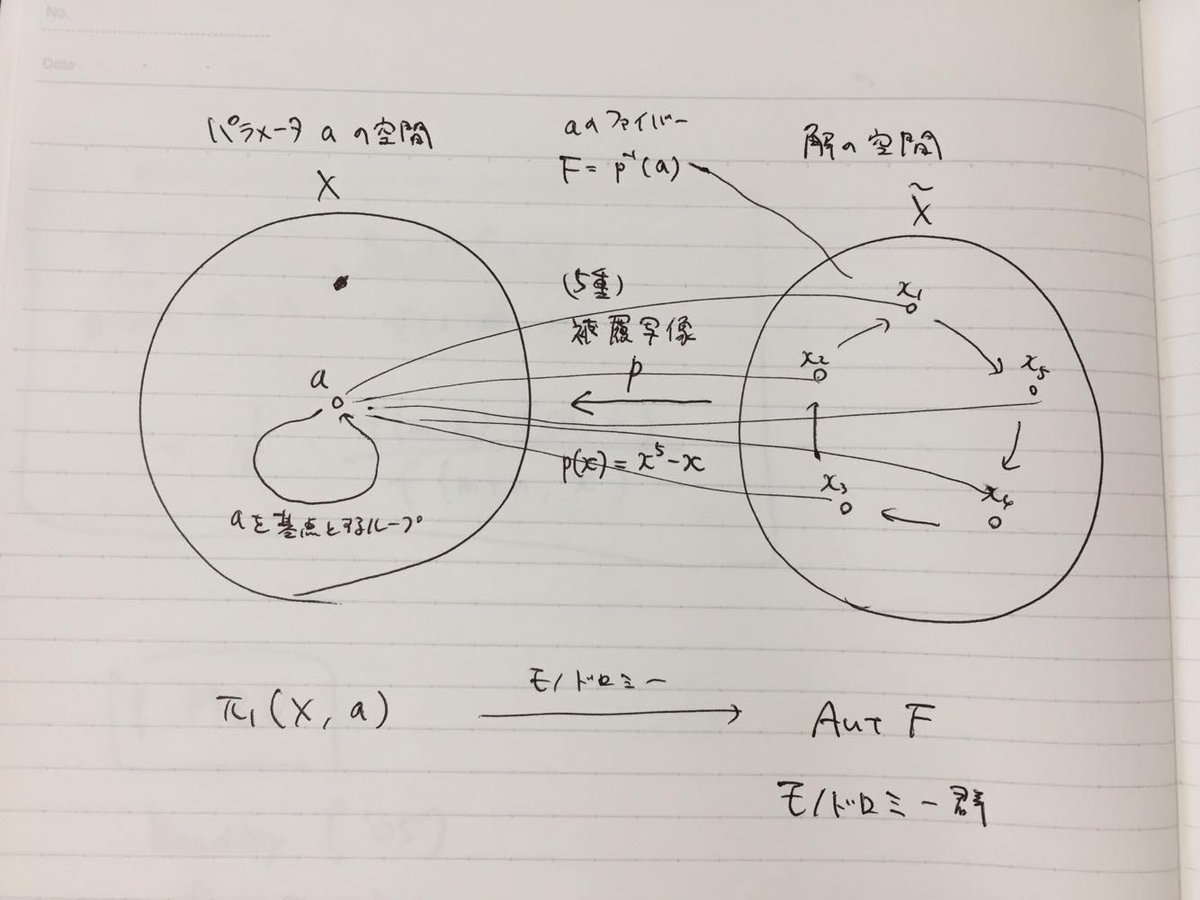 No.
Date
パラメータ a の空間
X
aのファイバー
F = p⁻¹(a)
解の空間
X̃
(5重)
被覆写像
p
p(x) = x⁵ - x
a
aを基点とするループ
x₁
x₂
x₅
x₃
x₄
π₁(X, a)
モノドロミー
Aut F
モノドロミー群